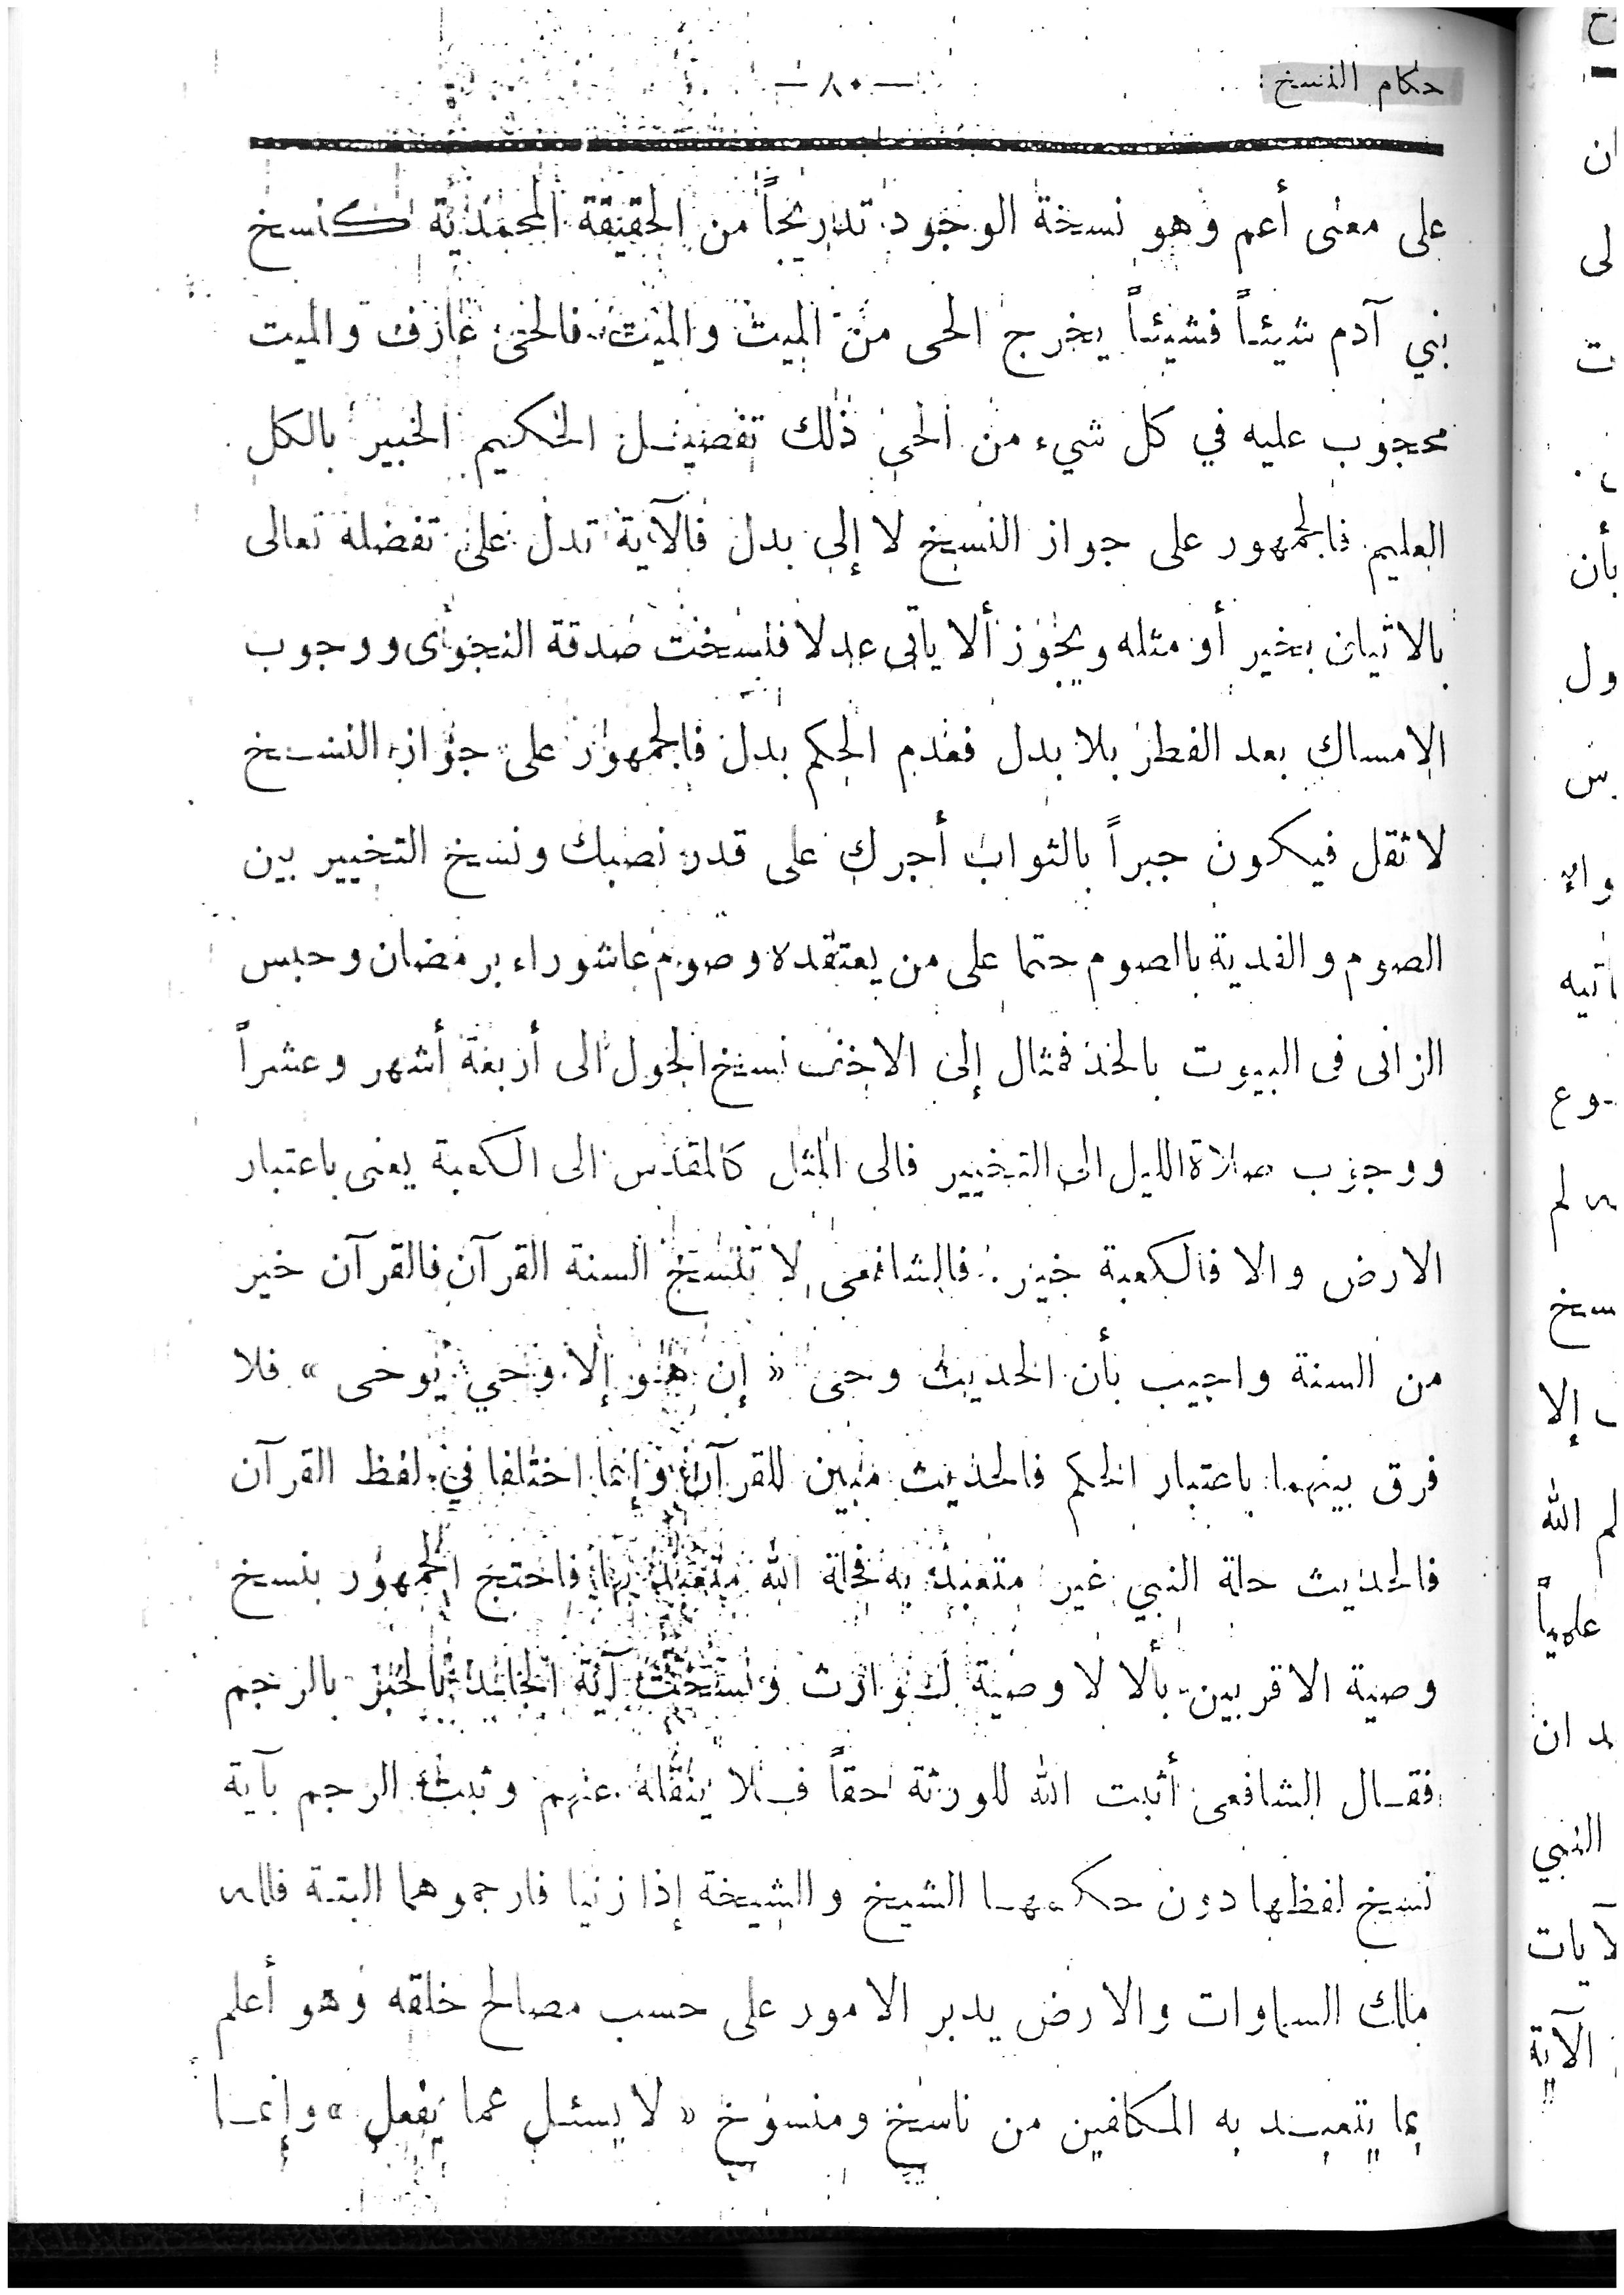 حكام النسخ :
— ٨٠ —
على معنى أعم وهو نسخة الوجود تدريجاً من الحقيقة المحمدية كنسخ
بني آدم شيئاً فشيئاً يخرج الحى من الميت والميت فالحى عارف والميت
محجوب عليه في كل شيء من الحى ذلك تفصيل الحكيم الخبير بالكل
العليم فالجمهور على جواز النسخ لا إلى بدل فالآية تدل على تفضله تعالى
بالاتيان بخير أو مثله ويجوز ألا يأتى عدلا فنسخت صدقة النجوى ووجوب
الامساك بعد الفطر بلا بدل فعدم الحكم بدل فالجمهور على جواز النسخ
لاثقل فيكون جبراً بالثواب أجرك على قدر نصبك ونسخ التخيير بين
الصوم والفدية باالصوم حتما على من يعتقده وصوم عاشوراء برمضان وحبس
الزانى فى البيوت بالحد فمثال إلى الاخف نسخ الحول الى أربعة أشهر وعشراً
ووجوب صلاة الليل الى التخيير فالى المثل كالمقدس الى الكعبة يعنى باعتبار
الارض والا فالكعبة خير . فالشافعى لا تنسخ السنة القرآن فالقرآن خير
من السنة واجيب بأن الحديث وحى « إن هو إلا وحي يوحى » فلا
فرق بينهما باعتبار الحكم فالحديث مبين للقرآن وإنما اختلفا في لفظ القرآن
فالحديث حلة النبي غير متعبد به فحلة الله متعبد بها فاحتج الجمهور بنسخ
وصية الاقربين بألا لا وصية لوارث ونسخت آية الجلد بالخبر بالرجم
فقال الشافعى أثبت الله للورثة حقاً فلا ينقله عنهم وثبت الرجم بآية
نسخ لفظها دون حكمها الشيخ والشيخة إذا زنيا فارجموهما البتة فالله
مالك السماوات والارض يدبر الامور على حسب مصالح خلقه وهو أعلم
بما يتعبد به المكلفين من ناسخ ومنسوخ « لا يسئل عما يفعل » وإنما